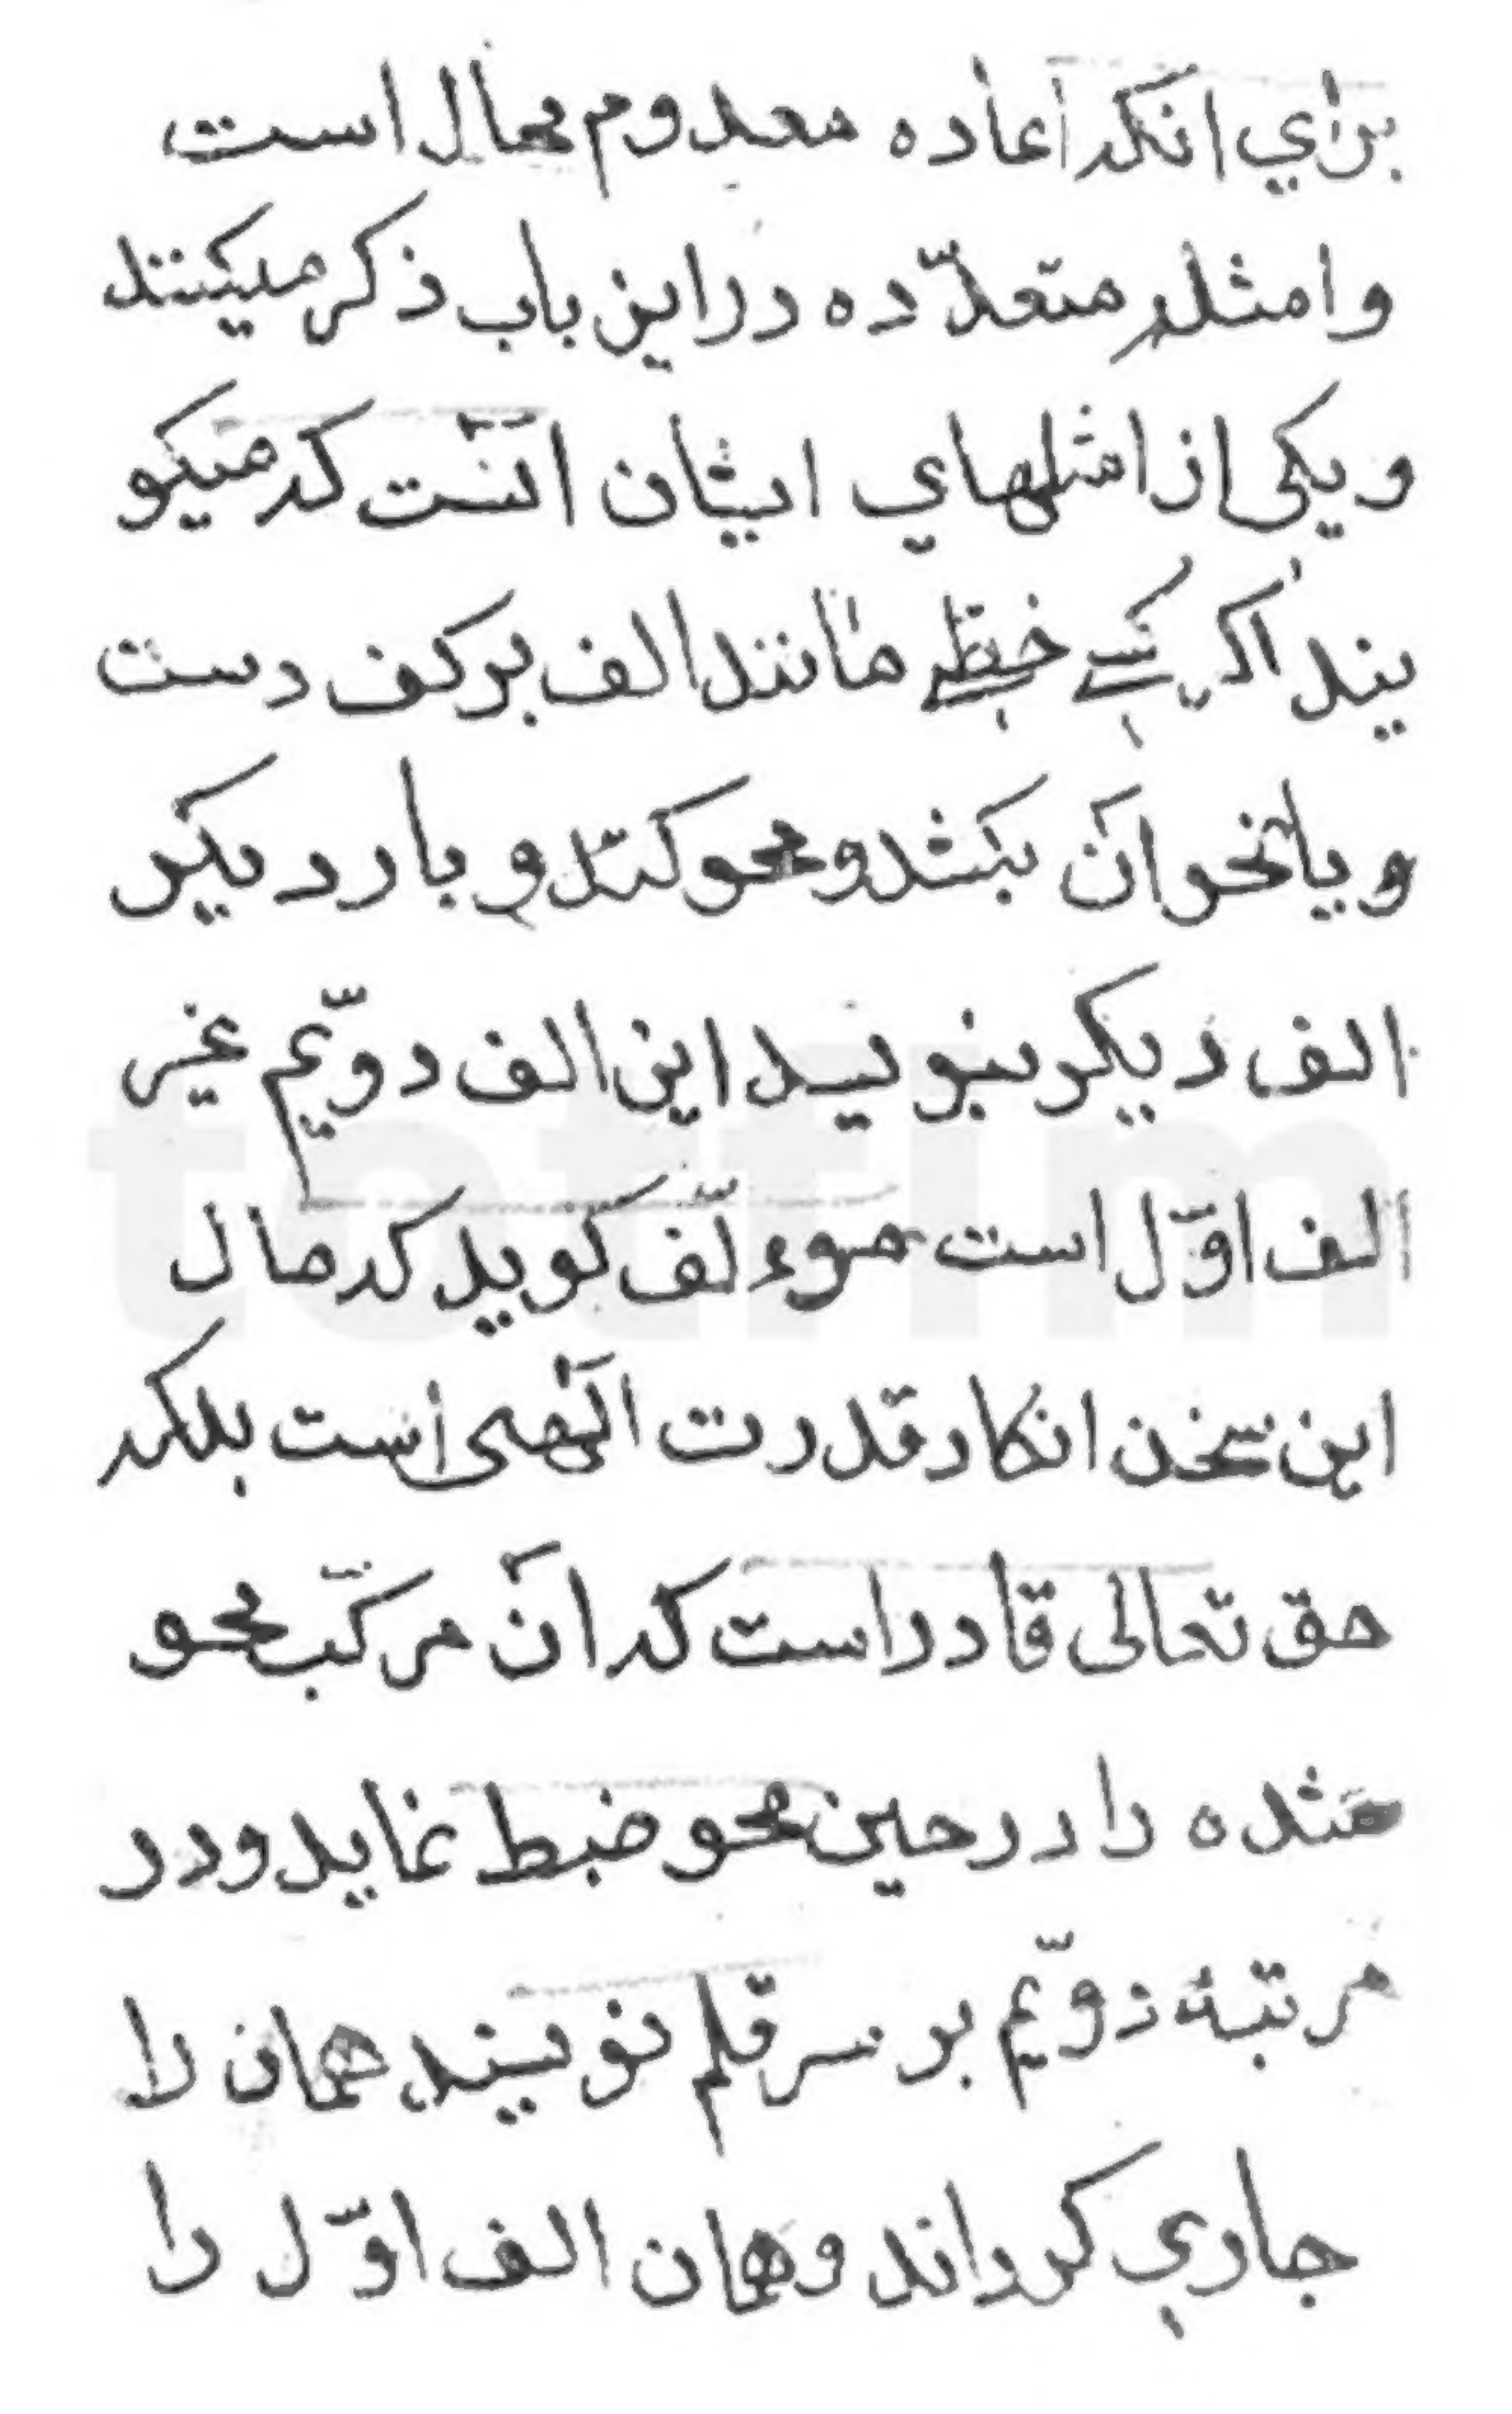 برای انکه اعاده معدوم محال است
و امثله متعدّده در این باب ذکر میکنند
و یکی از امثلهای ایشان آنست که میکو
یند اکر کسے خطے مانند الف بر کف دست
و یا نحو آن بکشد و محو کند و بار دیکر
الف دیکر بنویسد این الف دویّم غیر
الف اوّل است موءلّف کوید که مال
این سخن انکار قدرت الٓهی است بلکه
حق تعالی قادر است که آن مرکّب محو
شده را در حین محو ضبط نماید و در
مرتبهٔ دویّم بر سر قلم نویسنده همان را
جاری کرداند و همان الف اوّل را
totfim